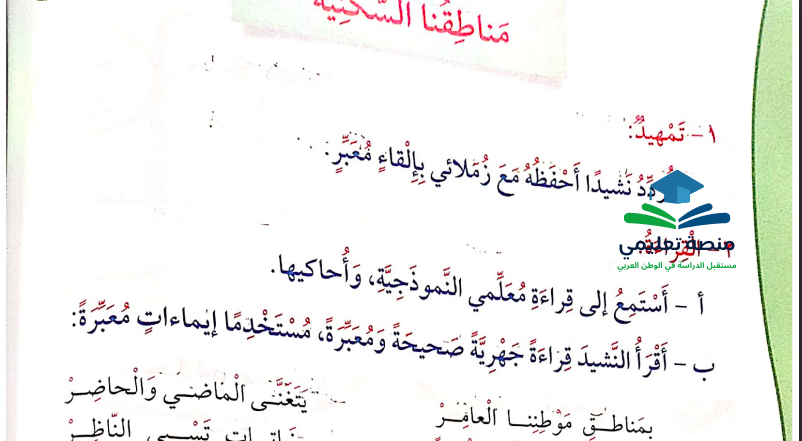 مَناطِقُنا السَّكَنِيَّةُ
١ – تَمْهيدٌ:
أُرَدِّدُ نَشيدًا أَحْفَظُهُ مَعَ زُمَلائي بِإِلْقاءٍ مُعَبِّرٍ.
٢ – الْقِراءَةُ:
منصة تعليمي
مستقبل الدراسة في الوطن العربي
أ – أَسْتَمِعُ إلى قِراءَةِ مُعَلِّمي النَّموذَجِيَّةِ، وَأُحاكيها.
ب – أَقْرَأُ النَّشيدَ قِراءَةً جَهْرِيَّةً صَحيحَةً وَمُعَبِّرَةً، مُسْتَخْدِمًا إيماءاتٍ مُعَبِّرَةً:
بِمَناطِقِ مَوْطِنِنا الْعامِرْ يَتَغَنَّى الْماضي وَالْحاضِرْ
تَسْبي النّاظِرْ